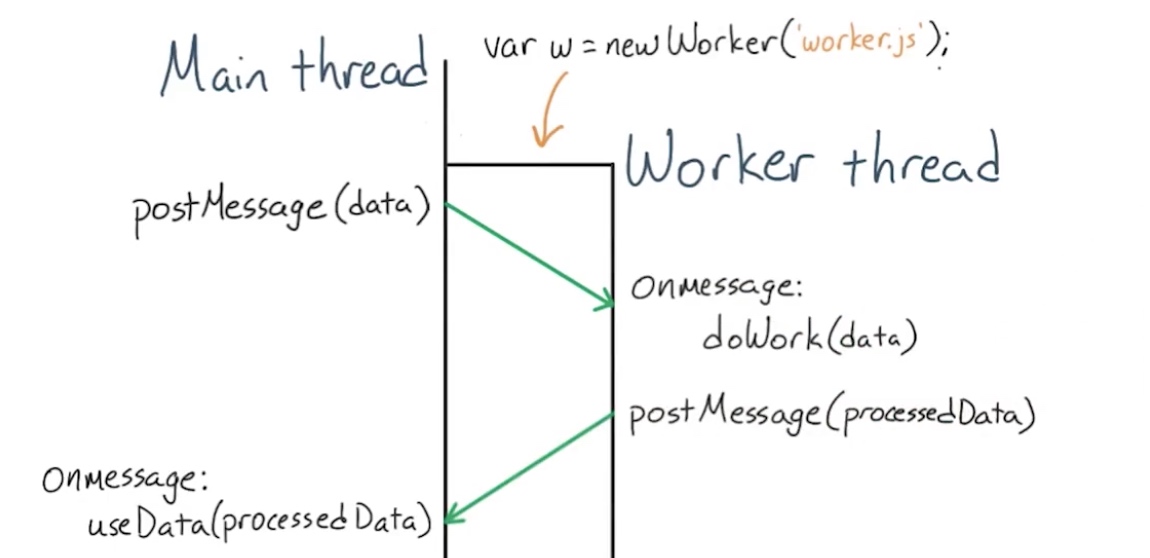 var w = new Worker('worker.js');
Main thread
Worker thread
postMessage(data)
Onmessage:
doWork(data)
postMessage(processedData)
Onmessage:
useData(processedData)